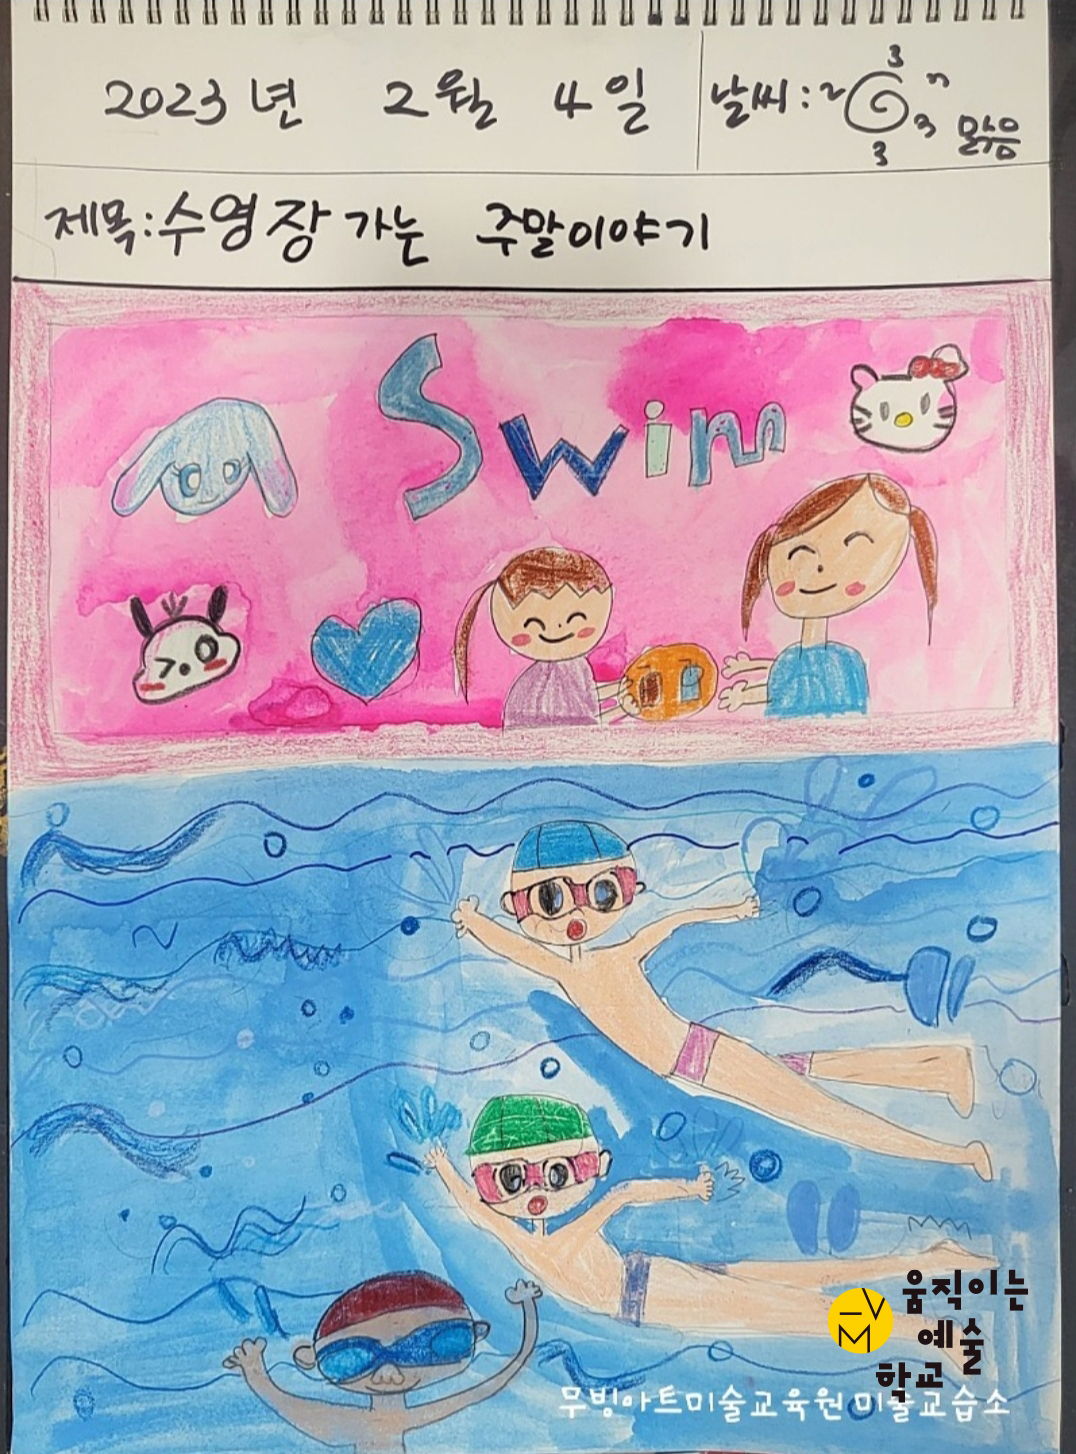 2023년 2월 4일 날씨: 맑음
제목: 수영장 가는 주말이야기
Swim
움직이는
예술
학교
무빙아트미술교육원 미술교습소